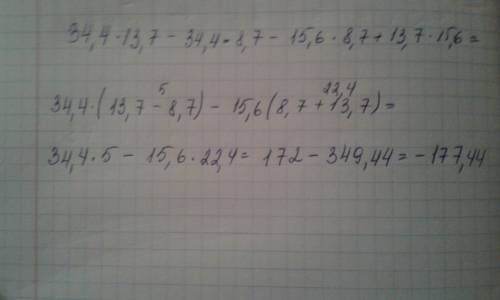 34,4 · 13,7 - 34,4 · 8,7 - 15,6 · 8,7 + 13,7 · 15,6 =
5 22,4
34,4 · ( 13,7 - 8,7 ) - 15,6 ( 8,7 + 13,7 ) =
34,4 · 5 - 15,6 · 22,4 = 172 - 349,44 = - 177,44